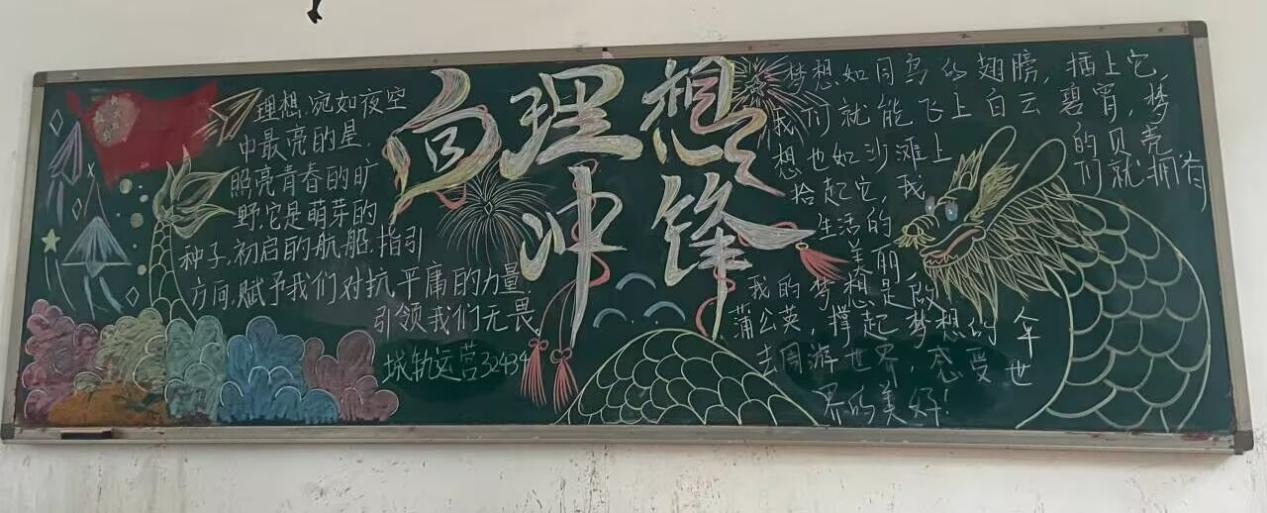 向理想
冲锋
理想,宛如夜空
中最亮的星,
照亮青春的旷
野,它是萌芽的
种子,初启的航船,指引
方向,赋予我们对抗平庸的力量,
引领我们无畏
城轨运营32434
梦想如同鸟的翅膀,插上它,
我们就能飞上白云碧霄,梦
想也如沙滩上的贝壳
拾起它,我们就拥有
生活的美丽,
我的梦想是做
蒲公英,撑起梦想的伞
去周游世界,感受世
界的美好!